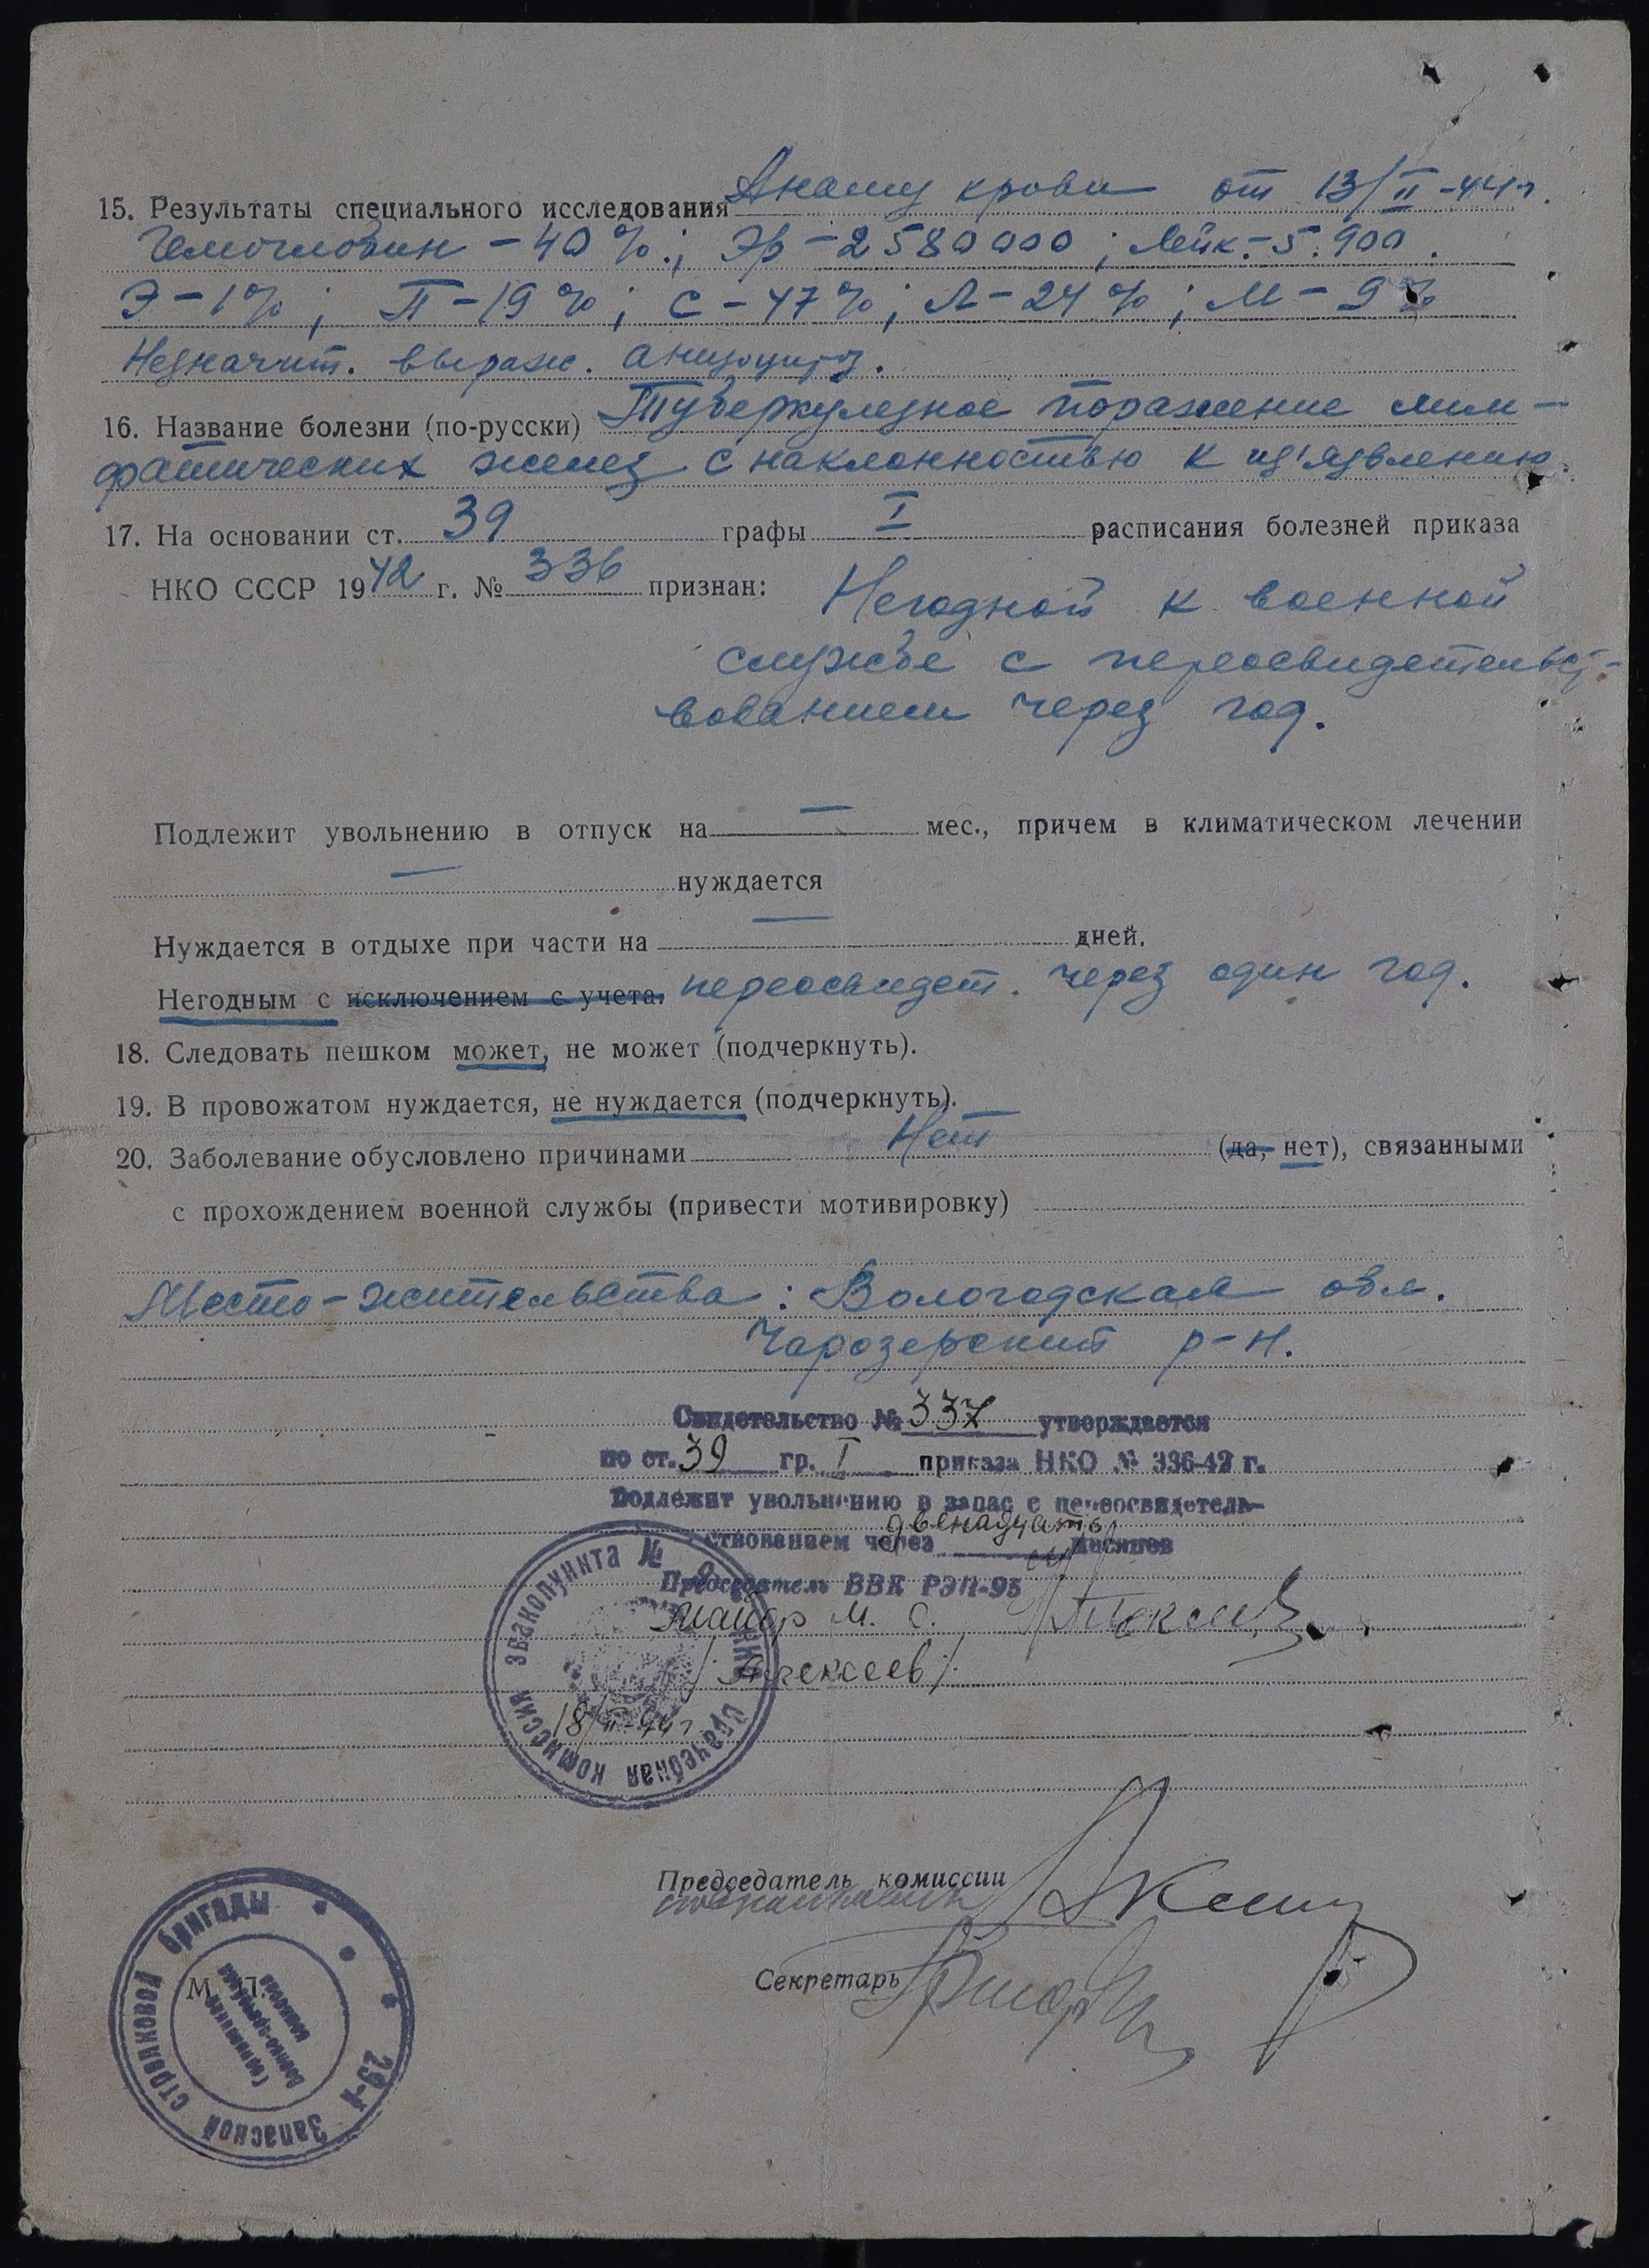 15. Результаты специального исследования Анализ крови от 13/II-44г.
Гемоглобин – 40%.; Эр – 2580000; Лейк. – 5.900.
Э – 1%; П – 19%; С – 47%; Л – 24%; М – 9%
Незначит. выраж. анизоцитоз.
16. Название болезни (по-русски) Туберкулезное поражение лим-
фатических желез с наклонностью к из'язвлению
17. На основании ст. 39 графы I расписания болезней приказа
НКО СССР 1942 г. № 336 признан: Негодной к военной
службе с переосвидетельст-
вованием через год.
Подлежит увольнению в отпуск на — мес., причем в климатическом лечении
— нуждается
Нуждается в отдыхе при части на — дней.
Негодным с исключением с учета. переосвидет. через один год.
18. Следовать пешком может, не может (подчеркнуть).
19. В провожатом нуждается, не нуждается (подчеркнуть).
20. Заболевание обусловлено причинами Нет (да, нет), связанными
с прохождением военной службы (привести мотивировку)
Место-жительства: Вологодская обл.
Чарозерский р-н.
Свидетельство № 337 утверждается
по ст. 39 гр. I приказа НКО № 336-42 г.
Подлежит увольнению в запас с переосвидетель-
ствованием через двенадцать месяцев
Председатель ВВК РЭП-95
Майор м. с. Алексеев
/Алексеев/
18/II-44г.
врачебная комиссия эвакопункта №
Председатель комиссии
Секретарь
М. П.
29-й Запасной стрелковой бригады
Гарнизонная военно-врачебная комиссия